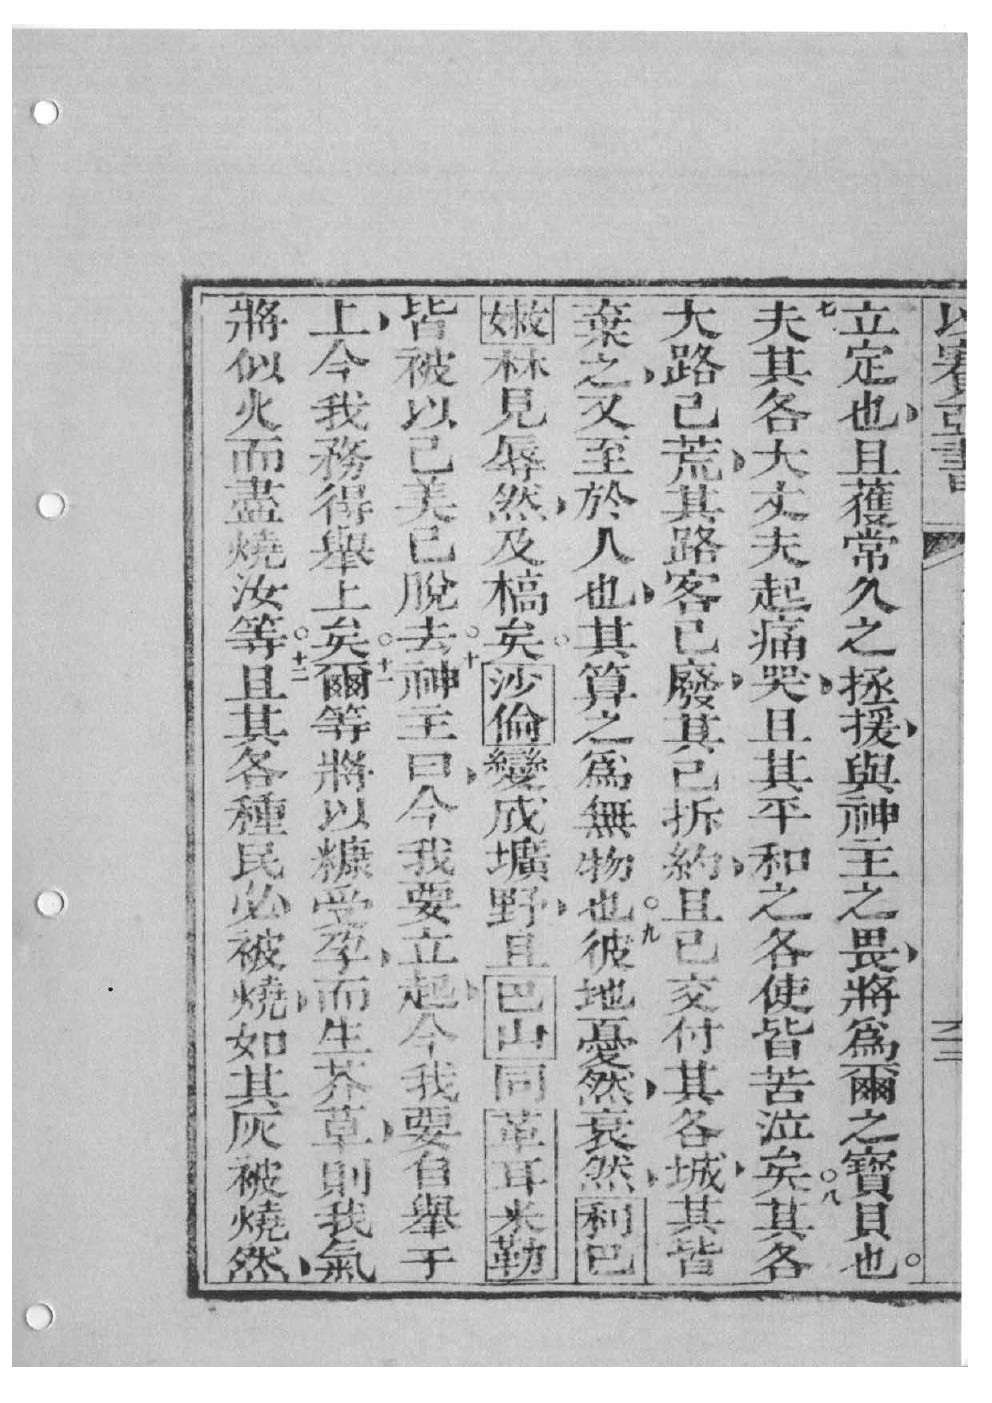 以賽亞書
立定也且獲常久之拯援與神主之畏將為爾之寶貝也。
七夫其各大丈夫起痛哭且其平和之各使皆苦泣矣。八其各
大路已荒其路客已廢其已拆約且已交付其各城其皆
棄之又至於人也其算之為無物也。九彼地憂然衰然利巴
嫩林見辱然及槁矣。沙倫變成壙野且巴山同革耳米勒
皆被以已美已脫去。十神主曰今我要立起今我要自舉于
上今我務得舉上矣。十一爾等將以糠受孕而生芥草則我氣
將似火而盡燒汝等。十二且其各種民必被燒如其灰被燒然